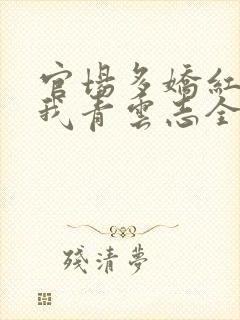 官場多嬌紅
我青雲志全
殘清夢